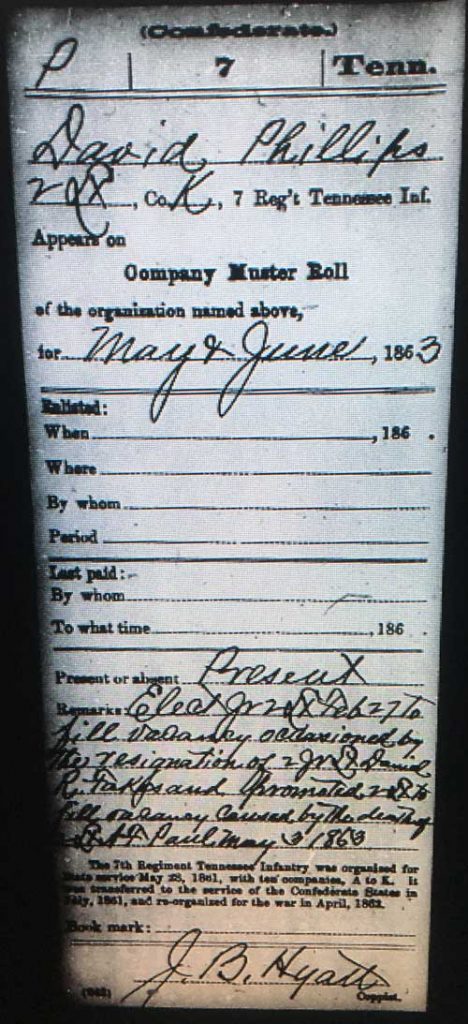 (Confederate.)
P | 7 | Tenn.
David Phillips
2 Lt, Co. K, 7 Reg't Tennessee Inf.
Appears on
Company Muster Roll
of the organization named above,
for May & June, 1863
Enlisted:
When , 186 .
Where
By whom
Period
Last paid:
By whom
To what time , 186 .
Present or absent Present
Remarks: Elect Jr 2 Lt Feb 27 to
fill vacancy occasioned by
the resignation of 2 Jr Lt Daniel
R. and promoted 2 Lt to
fill vacancy caused by the death of
Paul May 3 1863
The 7th Regiment Tennessee Infantry was organized for
State service May 28, 1861, with ten companies, A to K. It
was transferred to the service of the Confederate States in
July, 1861, and re-organized for the war in April, 1862.
Book mark:
J. B. Hyatt
(642) Copyist.